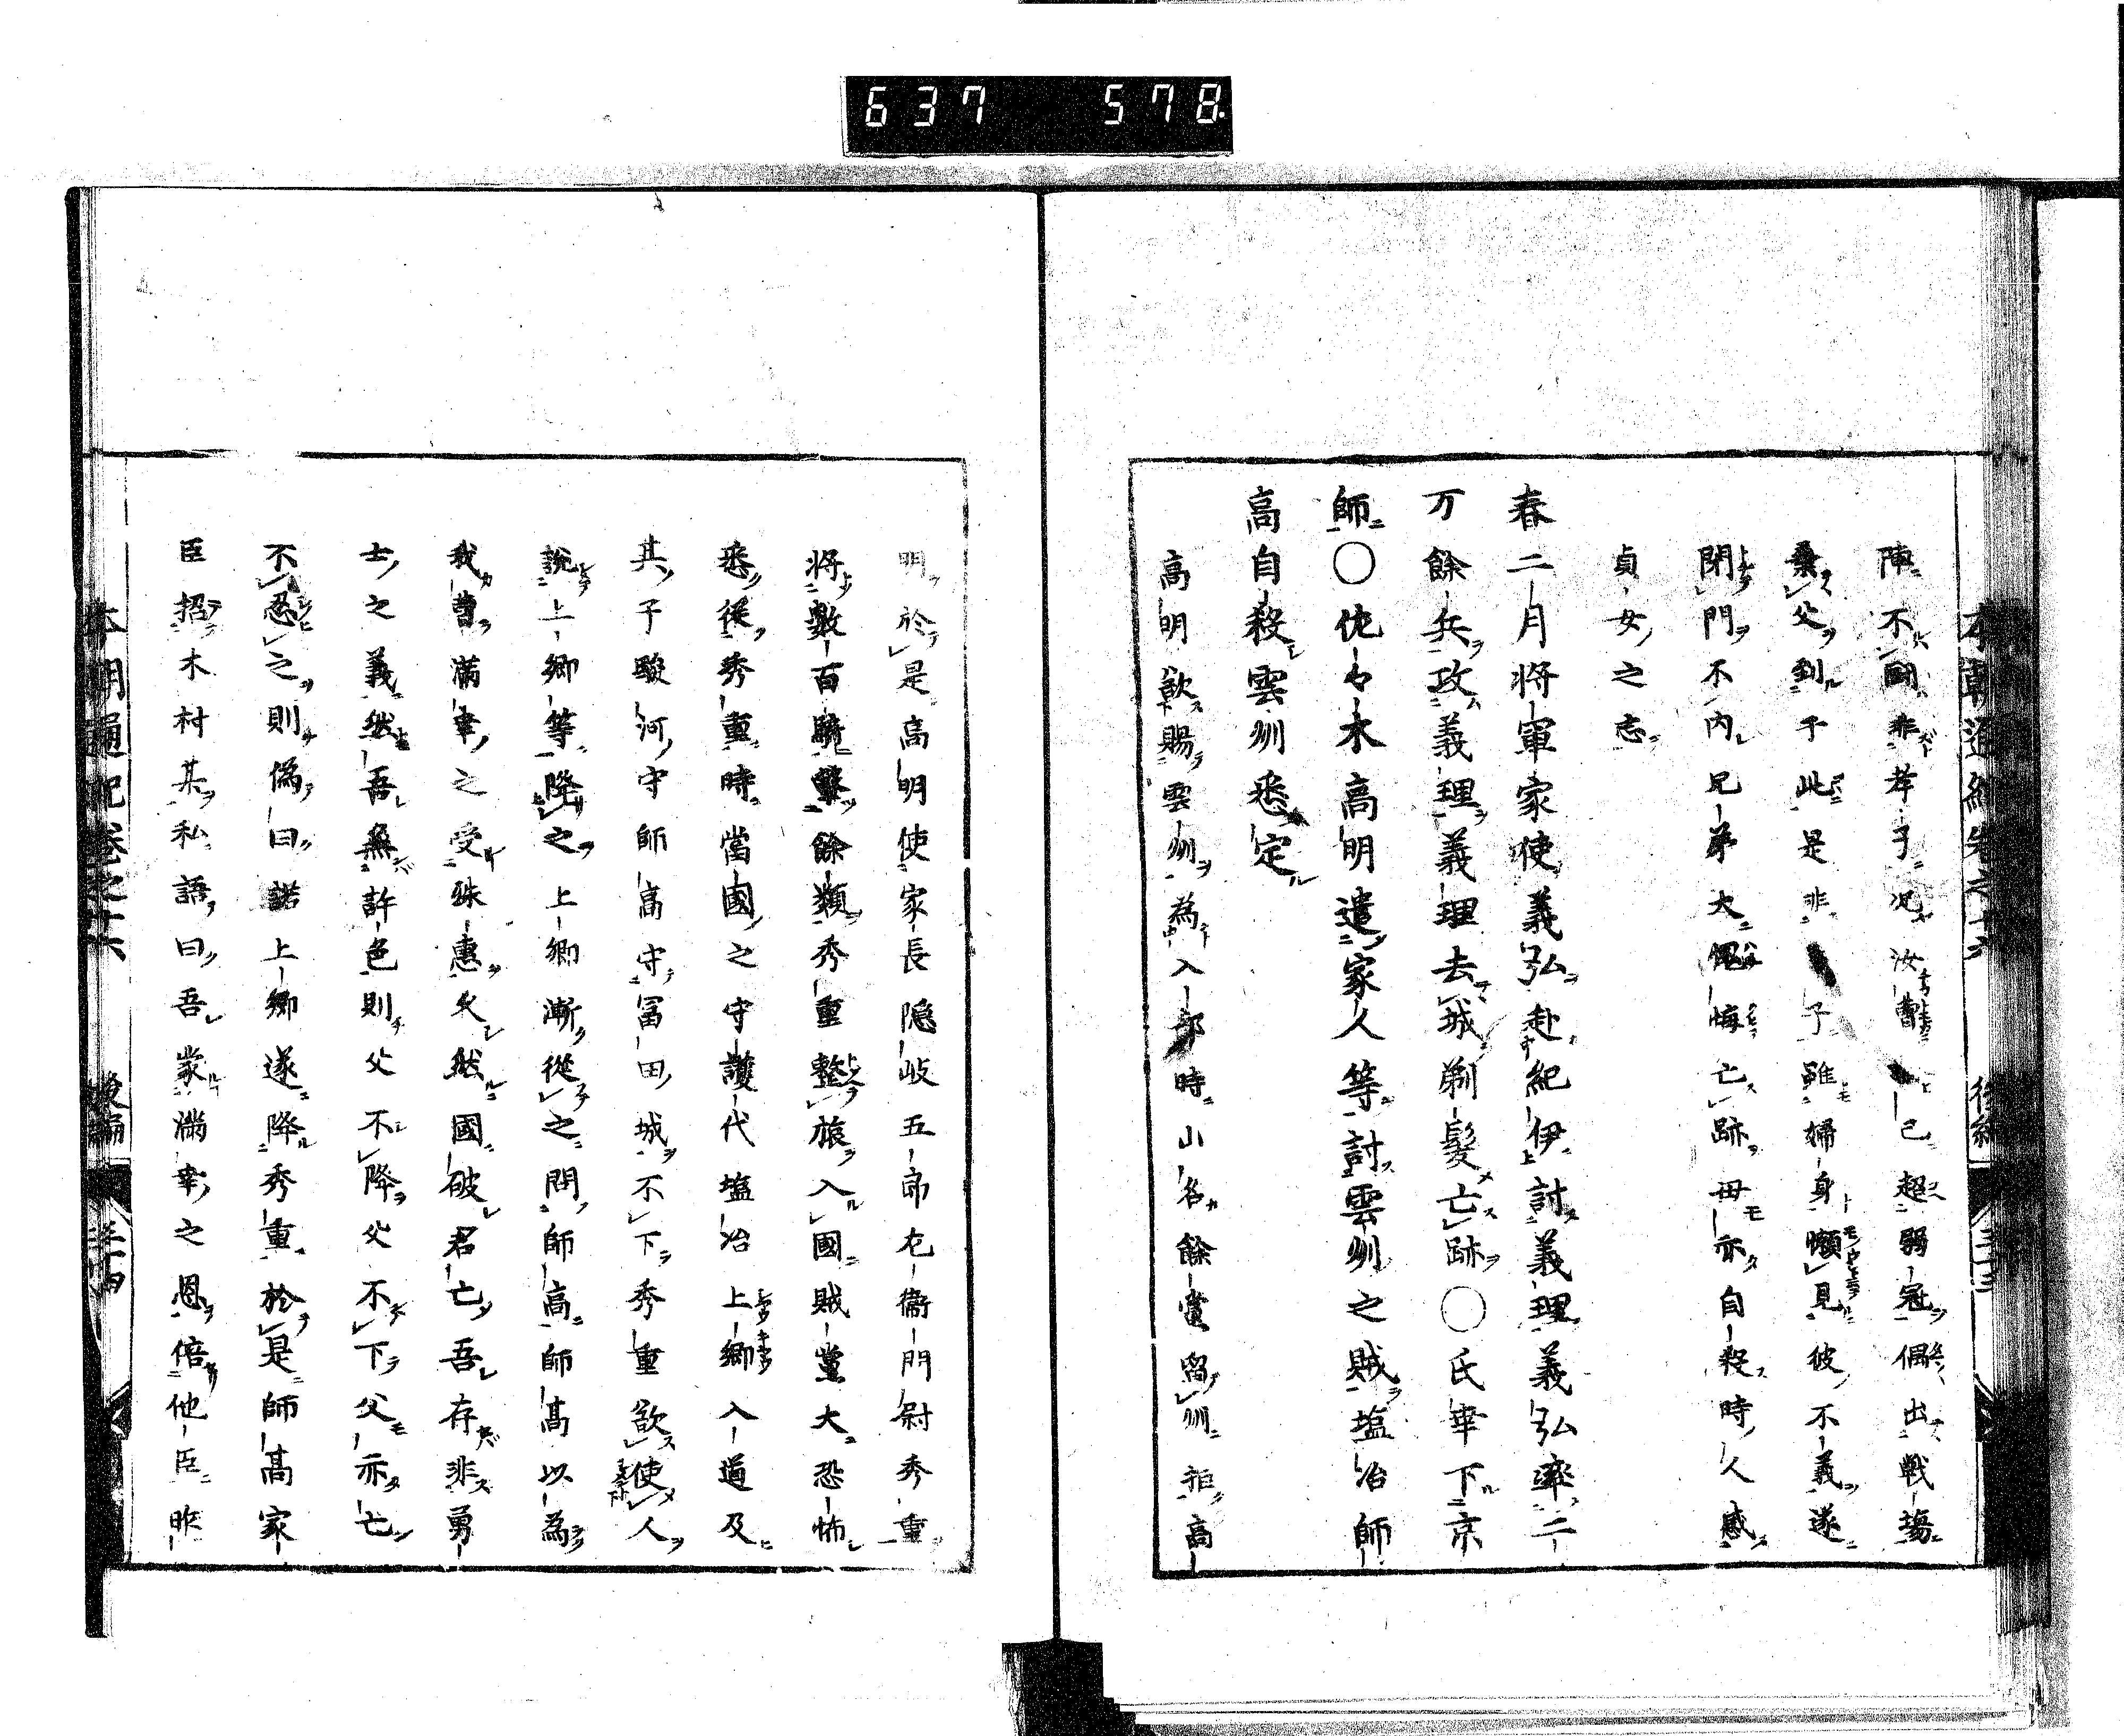 637 578
陣不鬪非孝子況汝曹已超弱冠偶出戰場
棄父到于此是非子雖婦身懶見彼不義遂
閉門不內兄弟大慨悔亡跡母亦自殺時人感
貞女之志
春二月將軍家使義弘赴紀伊討義理義弘率二
万餘兵攻義理義理去城剃髮亡跡〇氏率下京
師〇佐々木高明遣家人等討雲州之賊塩冶師
高自殺雲州悉定
高明欲賜雲州為入部時山名餘黨留州拒高
明於是高明使家長隠岐五郎左衞門尉秀重
將數百騎擊餘類秀重整旅入國賊黨大恐怖
悉從秀重時當國之守護代塩冶上郷入道及
其子駿河守師高守冨田城不下秀重欲使人
說上郷等降之上郷漸從之問師高師高以為
我曹滿幸之受殊惠久然國破君亡吾存非勇
士之義然吾無許色則父不降父不下父亦亡
不忍之則偽曰諾上郷遂降秀重於是師高家
臣招木村某私語曰吾蒙滿幸之恩倍他臣昨
本朝通紀卷之十六 後編 三十四